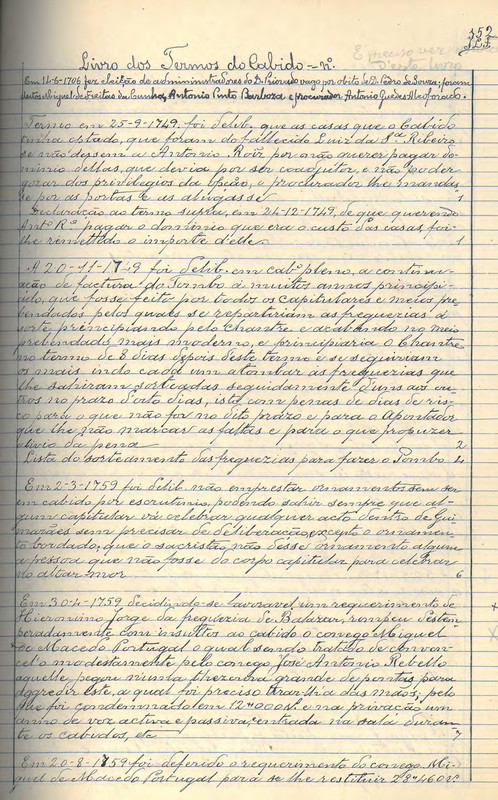 352
É preciso ver
D'este livro
Livro dos Termos do Cabido - nº
Em 14-6-1706 fez eleição de administradores do D. Priorado vago por obito de D. Pedro de Souza; foram
eleitos Miguel de Freitas da Cunha, Antonio Pinto Barboza e procurador Antonio Guedes Alcoforado.
Termo em 25-9-1749 foi delib. que as casas que o Cabido
tinha estado, que foram do fallecido Luiz da Sª Ribeiro
se não dessem a Antonio Roiz por não querer pagar do-
minio dellas, que devia por ser coadjutor, e não poder
gozar dos privilegios da opção, e procurador lhe mandas-
se por as portas e as alugasse 1
Declaração ao termo supra, em 24-12-1749, de que querendo
Antº Rº pagar o dominio que era o custo das casas foi-
lhe remettido o importe d'elle 1
A 20-11-1749 foi delib. em cabº pleno, a continu-
ação de factura do Tombo á muitos annos principi-
ado, que fosse feito por todos os capitulares e meios pre-
bendados pelos quaes se repartiriam as freguezias á
sorte, principiando pelo Chantre e acabando no meio
prebendado mais moderno, e principiaria o Chantre
no termo de 8 dias depois deste termo e se seguiriam
os mais indo cada um atombar ás freguezias que
lhe sahiram sorteadas seguidamente d'uns aos ou-
tros no prazo d'oito dias, isto com penas de dias de ris-
co para o que não for no dito prazo e para o Apontador
que lhe não marcar as faltas e para o que propuzer
alivio da pena 2
Lista do sorteamento das freguezias para fazer o Tombo 4
Em 2-3-1759 foi delib. não emprestar ornamentos sem ser
em cabido por escrutinio, podendo sahir sempre que al-
gum capitular vá celebrar qualquer acto dentro de Gui-
marães sem precisar de deliberação, excepto o ornamen-
to bordado, que o sacristão não désse ornamento algum
a pessoa que não fosse do corpo capitular para celebrar
no altar-mór 6
Em 30-4-1759 decidindo-se favoravel, um requerimento de
Hieronimo Jorge da freguezia de Balazar, rompeu destem-
peradamente com insultos ao cabido o conego Miguel
de Macedo Portugal o qual sendo tratado de convon-
cel'o modestamente pelo conego José Antonio Rebello
aquelle, pegou n'uma thezoura grande de pontas para
aggredir este, a qual foi preciso tirar-lh'a das mãos; pelo
que foi condemnado em 12$000 e na privação um
anno de voz activa e passiva, entrada na sala duran-
te os cabidos, etc 7
Em 20-8-1759 foi deferido o requerimento do conego Mi-
guel de Macedo Portugal para se lhe restituir 28$460